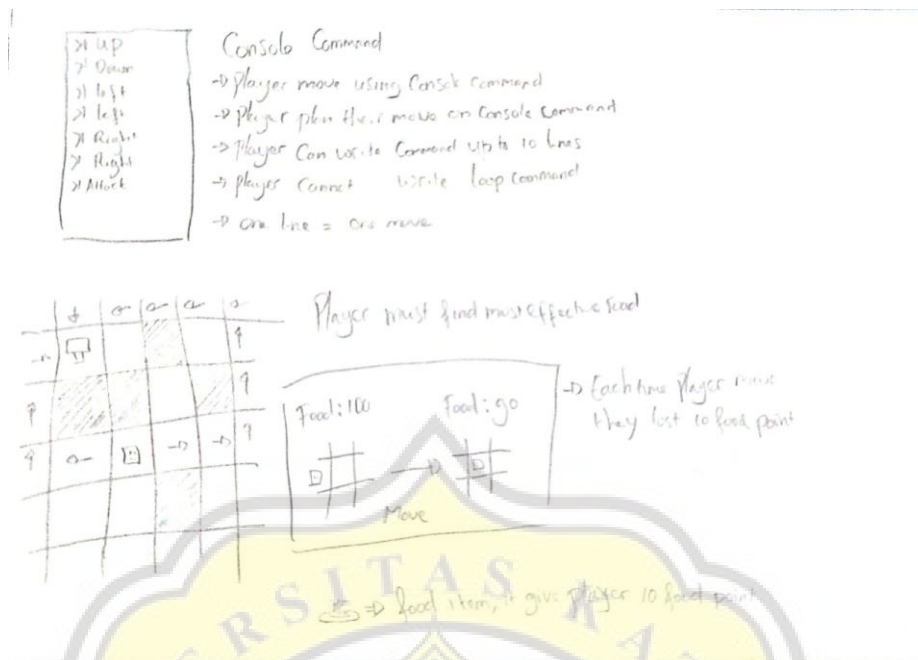 >| Up
>| Down
>| left
>| left
>| Right
>| Right
>| Attack
Console Command
→ Player move using Console Command
→ Player plan their move on Console Command
→ Player Can write Command up to 10 lines
→ Player Cannot write loop command
→ one line = one move
Player must find most effective road
Food: 100
Food: 90
Move
→ Each time Player move
they lost 10 food point
⇒ food item, it give player 10 food point
ERSITAS KA